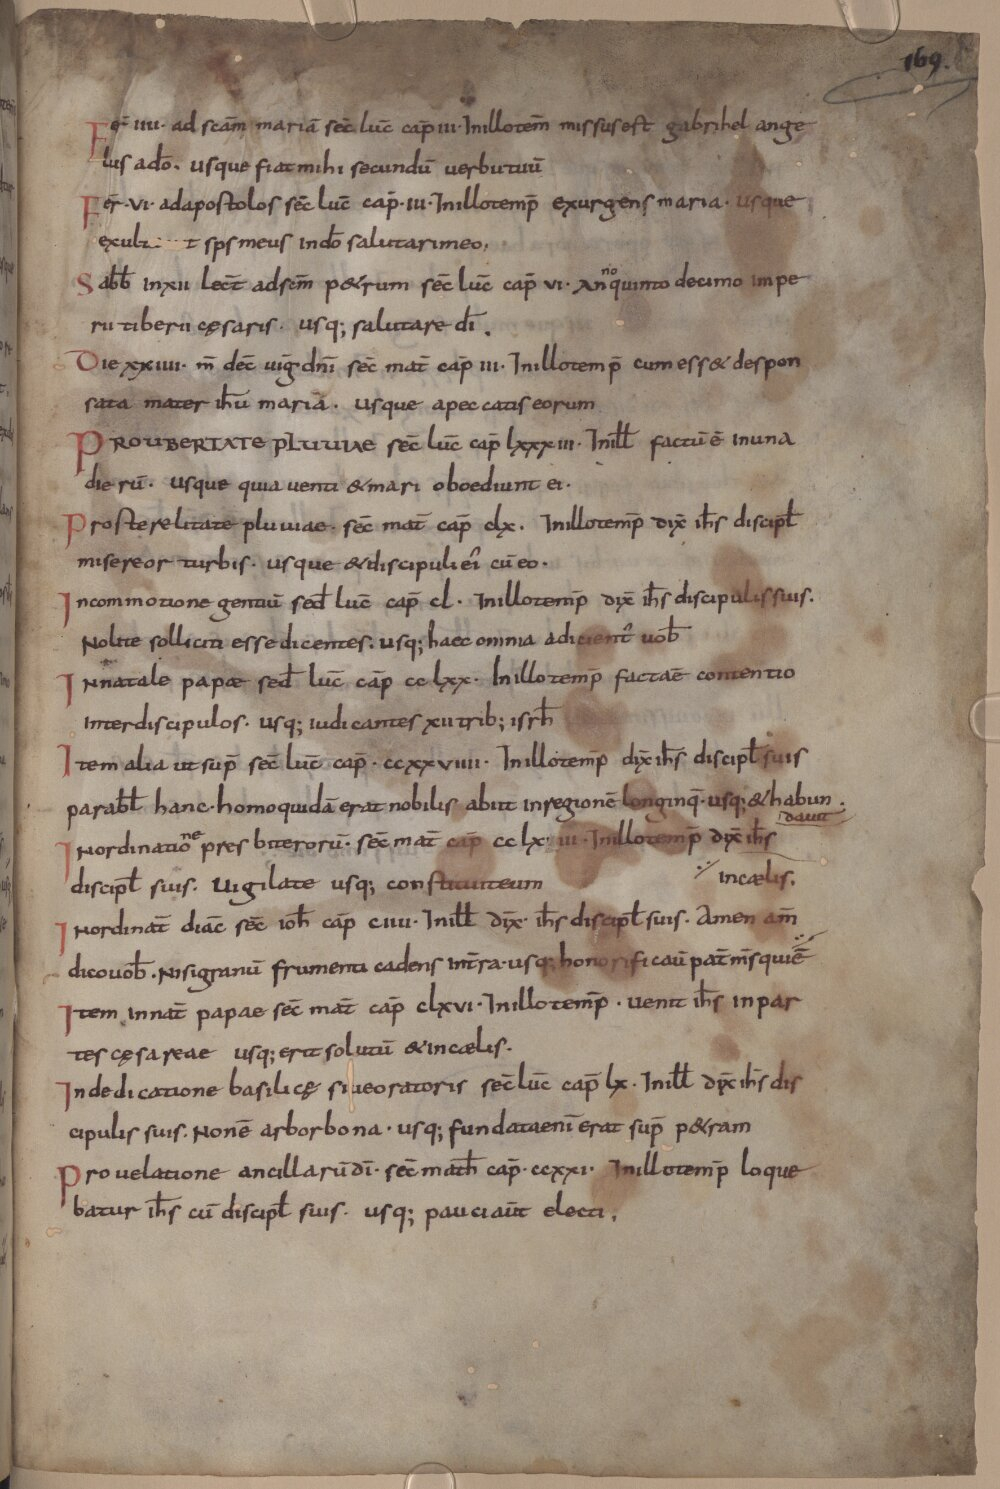 169.
Fer̄ IIII· ad scām mariā sec̄ luc̄ cap̄ III· Inillotem̄ missusest gabrihel ange
lus ad̄o. usque fiat mihi secundū uerbūtuū
Fer̄·VI· adapostolos sec̄ luc̄ cap̄·III· Inillotemp̄ exurgens maria· usque
exult t sps meus indō salutarimeo,
Sabb̄ inxii lect̄ adscm̄ p&rum sec̄ luc̄ cap̄ VI· Anno quinto decimo impe
rii tiberii cęsaris· usq; salutare dī.
Die xxiiii· m̄ dec̄ uiḡ dnī sec̄ mat̄ cap̄ III· Inillotemp̄ cum ess& despon
sata mater ihū maria. usque apeccatis eorum
PROUBERTATE PLUUIAE sec̄ luc̄ cap̄ lxxxiii· Inill̄ factū ē inuna
dierū. usque quia uenti & mari oboediunt ei.
Prosterelitate pluuiae· sec̄ mat̄ cap̄ clx. Inillotemp̄ dix̄ ih̄s discipl̄
misereor turbis. usque &discipuli ei' cū eo.
Incommotione gentiū sed̄ luc̄ cap̄ cl· Inillotemp̄ dix̄ ih̄s discipulis suis.
Nolite solliciti esse dicentes. usq; haec omnia adicient' uob̄
Innatale papæ sed̄ luc̄ cap̄ cclxx· Inillotemp̄ facta ē contentio
interdiscipulos. usq; iudicantes xii trib; isrh̄
Item alia ut sup̄ sec̄ luc̄ cap̄· ccxxviiii· Inillotemp̄ dix̄ ih̄s discipl̄ suis
parabl̄ hanc· homo quidā erat nobilis abiit inregionē longinq̄· usq; & habun.
dauit
Inordinatione presbiterorū· sec̄ mat̄ cap̄ cclx· iii· Inillotemp̄ dix̄ ih̄s
discipl̄ suis. Uigilate usq; constituit eum incælis.
Inordinat̄ diac̄ sec̄ ioh̄ cap̄ ciiii· Inill̄ dix̄· ih̄s discipl̄ suis. Amen am̄
dico uob̄. Nisi granū frumenti cadens int̄ra· usq; honorificau' pat̄ m̄s qui ē
Item innat̄ papae sec̄ mat̄ cap̄ clxvi· Inillotemp̄· uenit ih̄s inpar
tes cęsareae usq; erit solutū & incælis.
Indedicatione basilicę siue oratoris sec̄ luc̄ cap̄ lx· Inill̄ dix̄ ih̄s dis
cipulis suis. Nonē arbor bona· usq; fundata eni' erat sup̄ p&ram
Prouelatione ancillarū dī· sec̄ math̄ cap̄· ccxxi· Inillotemp̄ loque
batur ih̄s cū discipl̄ suis· usq; pauci aūt electi,